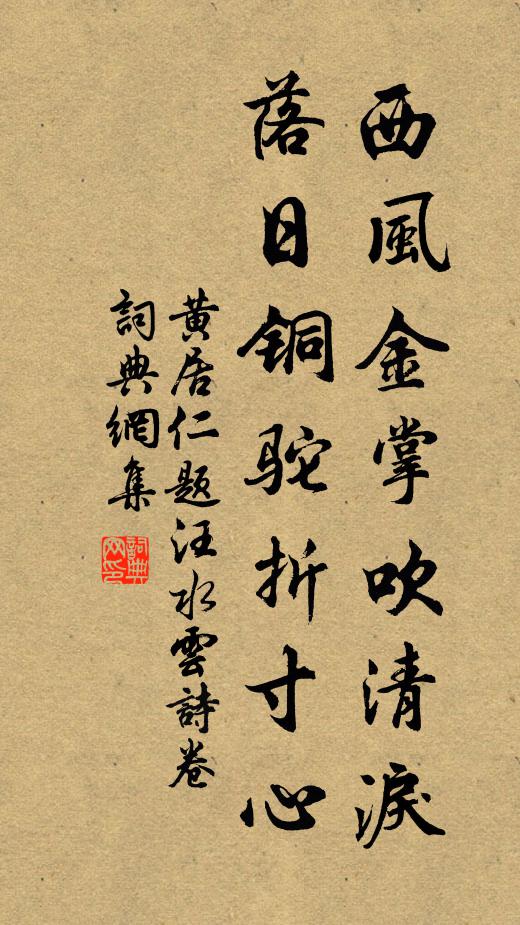 西風金掌吹清淚
落日銅駝折寸心
黃居仁題汪水雲詩卷
詞典網集
詞典網印